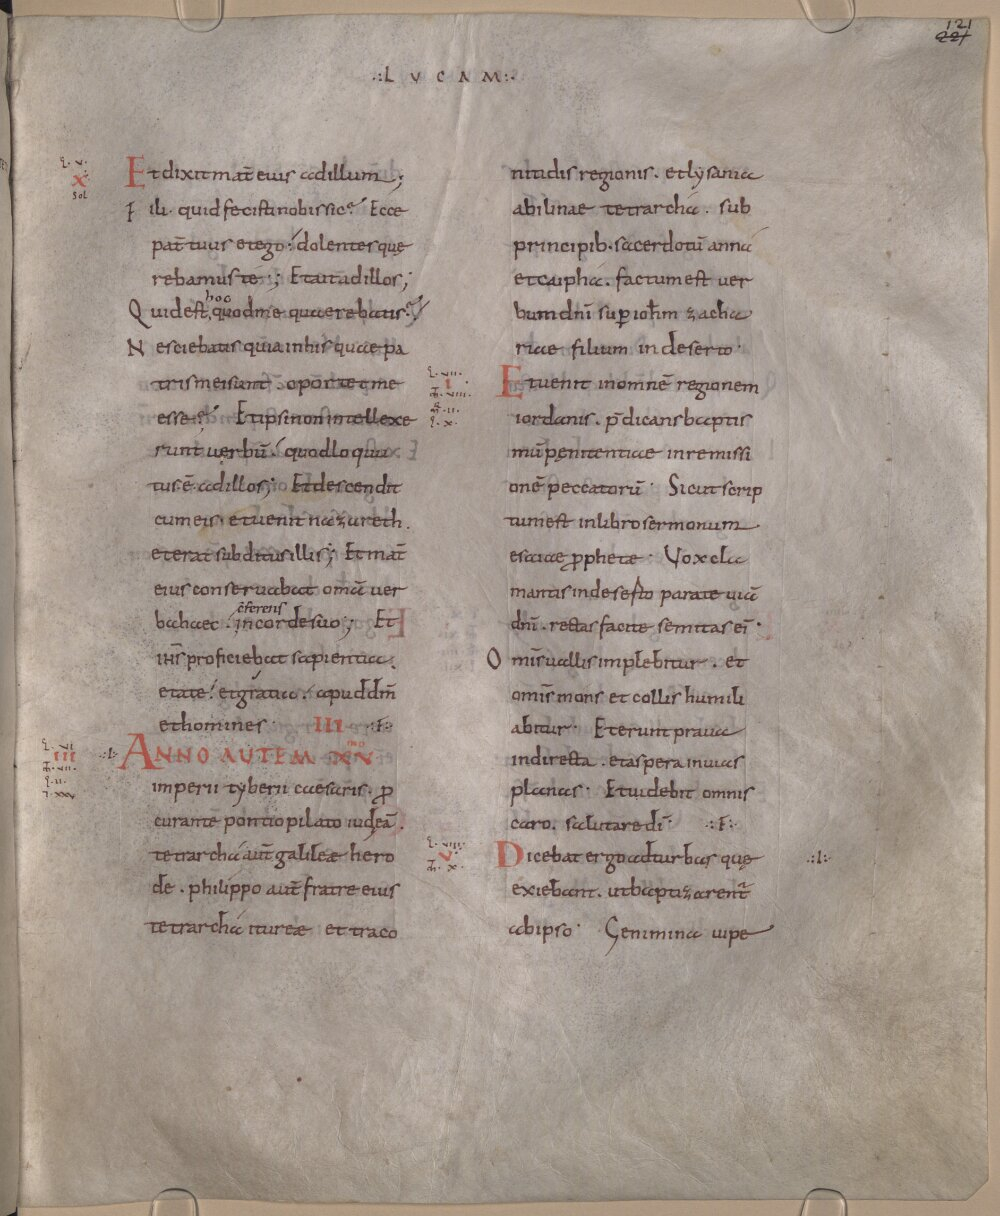 121
221
.:LVCAM:.
Et dixit mat̄ eius ad illum;
Fili. quid fecisti nobis sic? Ecce
pat̄ tuus et ego dolentes quę
rebamus te; Et ait ad illos;
hoc
Quid est quod me quaerebatis?
Nesciebatis quia in his quae pa
tris mei sunt. oportet me
esse? Et ipsi non intellexe
runt verbū. quod locu
tus ē ad illos; Et descendit
cum eis. et venit nazareth.
et erat subditus illis; Et mat̄
eius conservabat omā ver
cferens
ba haec. in corde suo; Et
ih̄s proficiebat sapientia.
etate. et gratia. apud dm̄
et homines. III .:F:.
.I. ANNO AUTEM XV
mo
imperii tyberii caesaris. p
curante pontio pilato iudeā.
tetrarcha aut̄ galileae hero
de. philippo aut̄ fratre eius
tetrarcha itureae et traco
nitidis regionis. et lysania
abilinae tetrarcha. sub
principib. sacerdotū anna
et caipha. factum est ver
bum dn̄i sup ioh̄m zacha
riae filium in deserto.
Et venit in omnē regionem
iordanis. p̄dicans baptis
mū penitentiae in remissi
onē peccatorū. Sicut scrip
tum est in libro sermonum
esaiae pphetae. Vox cla
mantis in deserto parate viā
dn̄i. rectas facite semitas ei.
Omis vallis implebitur. et
omis mons et collis humili
abitur. Et erunt prava
indirecta. et aspera in vias
planas. Et videbit omnis
caro. salutare dī .:F:.
Dicebat ergo ad turbas quę .:I:.
exiebant. ut baptizarent̄
ab ipso. Genimina vipe